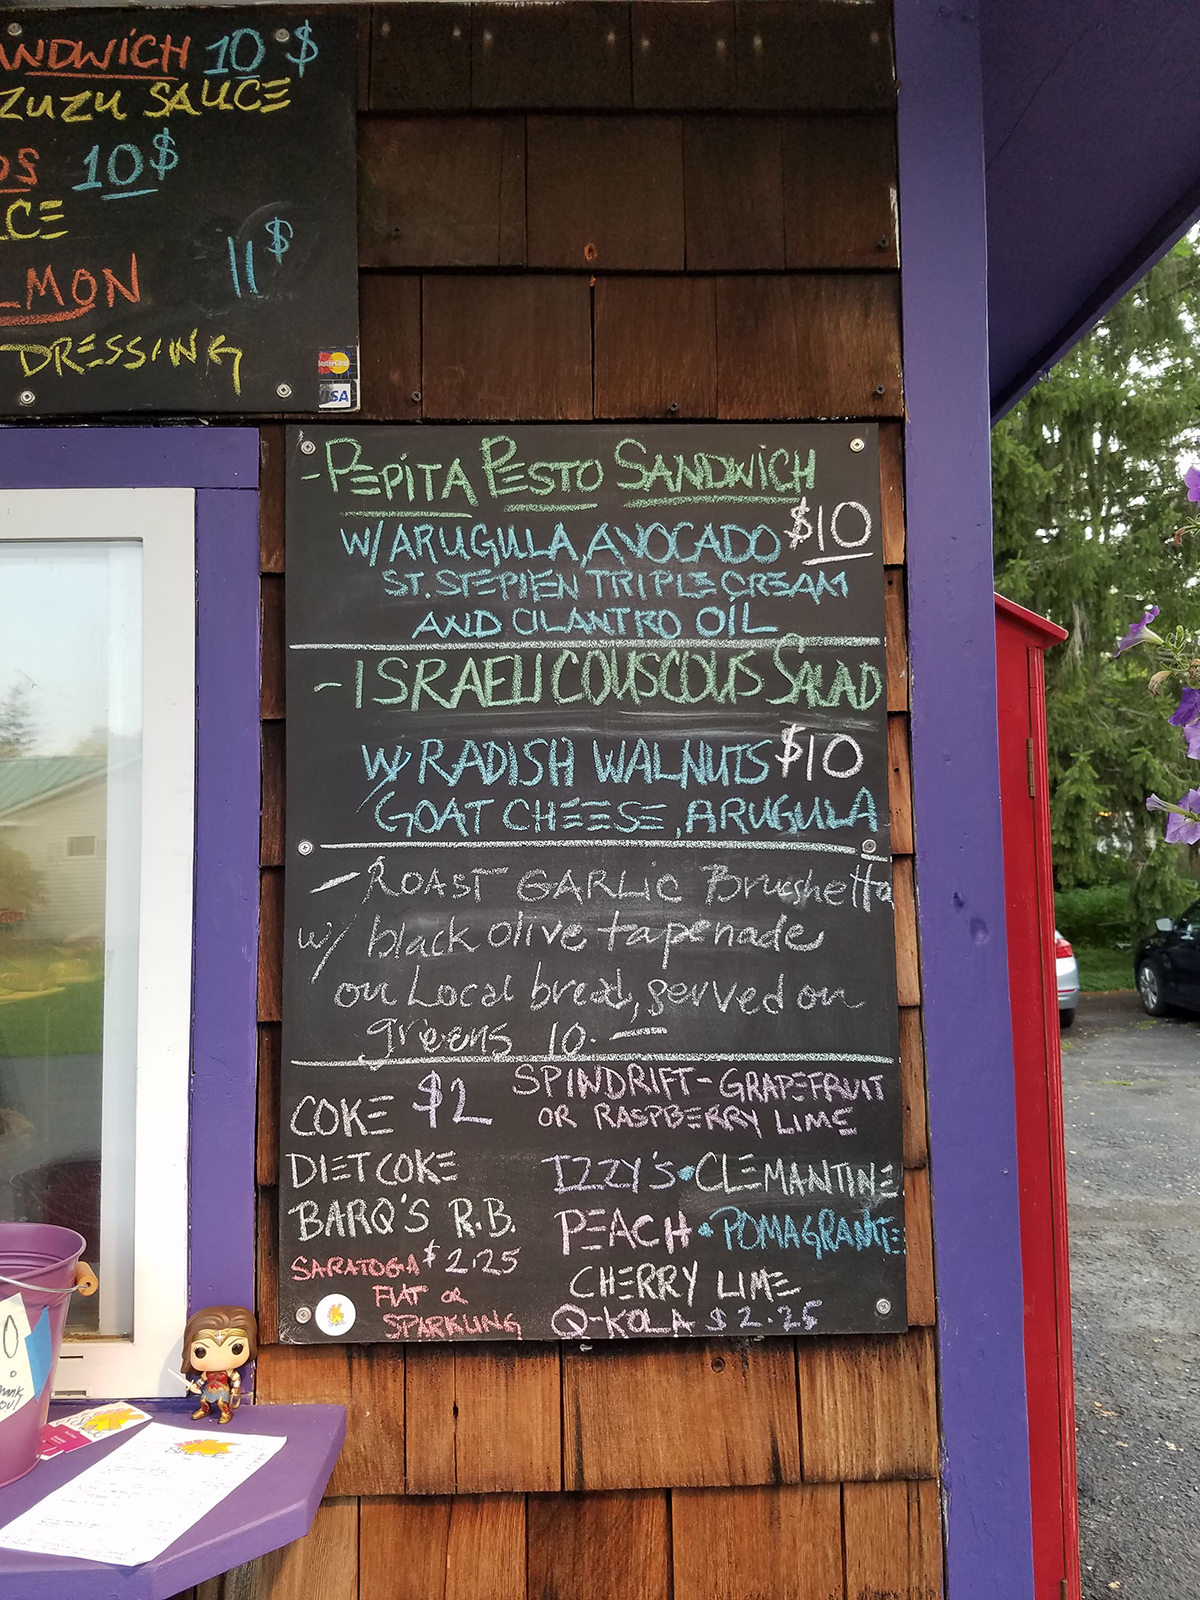 ANDWICH 10$
ZUZU SAUCE
10$
CE
LMON 11$
DRESSING
MasterCard
VISA
-PEPITA PESTO SANDWICH
W/ ARUGULA, AVOCADO $10
ST. STEPHEN TRIPLE CREAM
AND CILANTRO OIL
-ISRAELI COUSCOUS SALAD
W/ RADISH WALNUTS $10
GOAT CHEESE, ARUGULA
-ROAST GARLIC Bruschetta
w/ black olive tapenade
on Local bread, served on
greens 10.-
COKE $2
DIET COKE
BARQ'S R.B.
SARATOGA $2.25
FLAT OR
SPARKLING
SPINDRIFT-GRAPEFRUIT
OR RASPBERRY LIME
IZZY'S•CLEMANTINE
PEACH•POMAGRANTE
CHERRY LIME
Q-KOLA $2.25
Thank
you!